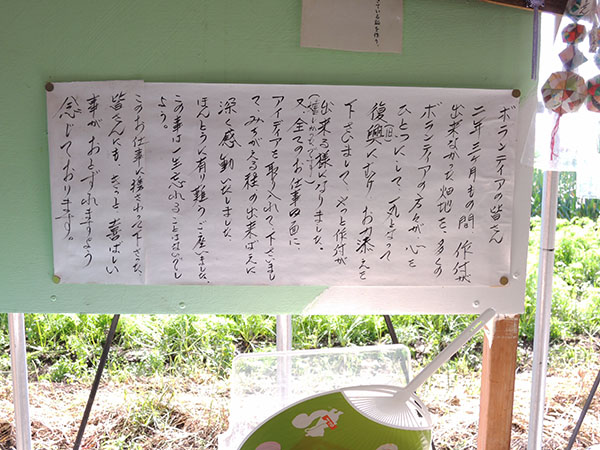 ボランティアの皆さん
二年三ヶ月もの間 作付が
出来なかった畑地を、多くの
ボランティアの方々が 心を
ひとつにして、一丸となって
復興に お力添えを
下さいまして、やっと作付が
出来る様になりました。
又、全てのお仕事の面に、
アイディアを取り入れて、下さいまし
て、みちがえる程の出来ばえに
深く感動いたしました。
ほんとうに有り難うございました。
この事は一生忘れることはないでし
ょう。
このお仕事に携さわって下さった、
皆さんにも、きっと 喜ばしい
事が おとずれますよう
念じております。